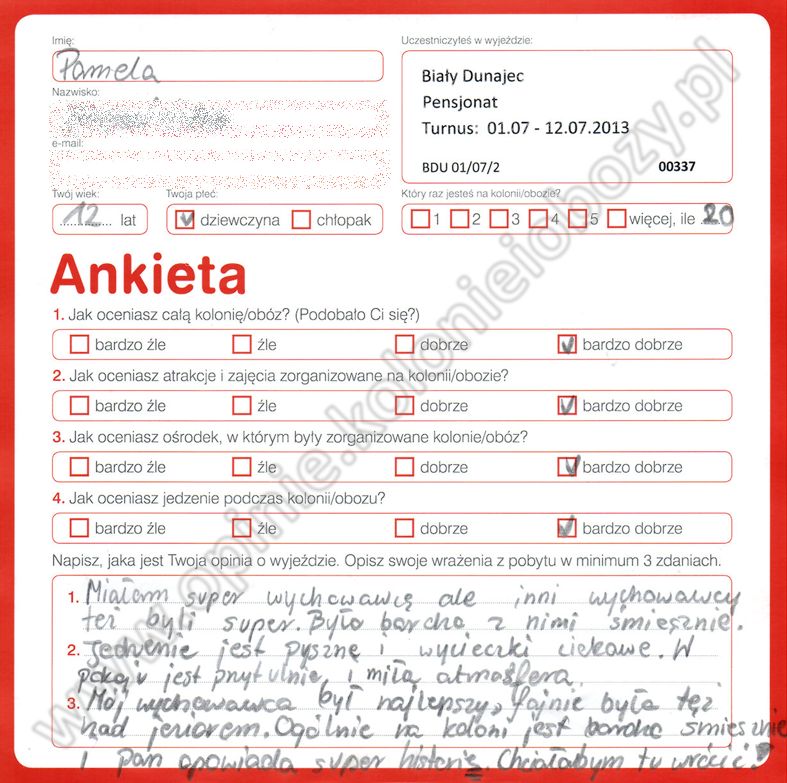 Imię:
Uczestniczyłeś w wyjeździe:
Pamela
Biały Dunajec
Pensjonat
Turnus: 01.07 - 12.07.2013
BDU 01/07/2 00337
Nazwisko:
e-mail:
Twój wiek:
Twoja płeć:
Który raz jesteś na kolonii/obozie?
12 lat
dziewczyna chłopak
1 2 3 4 5 więcej, ile 20
Ankieta
1. Jak oceniasz całą kolonię/obóz? (Podobało Ci się?)
bardzo źle źle dobrze bardzo dobrze
2. Jak oceniasz atrakcje i zajęcia zorganizowane na kolonii/obozie?
bardzo źle źle dobrze bardzo dobrze
3. Jak oceniasz ośrodek, w którym były zorganizowane kolonie/obóz?
bardzo źle źle dobrze bardzo dobrze
4. Jak oceniasz jedzenie podczas kolonii/obozu?
bardzo źle źle dobrze bardzo dobrze
Napisz, jaka jest Twoja opinia o wyjeździe. Opisz swoje wrażenia z pobytu w minimum 3 zdaniach.
1. Miałam super wychowawcę ale inni wychowawcy
też byli super. Było bardzo z nimi śmiesznie.
2. Jedzenie jest pyszne i wycieczki ciekawe. W
pokoju jest przytulnie, i miła atmosfera.
3. Mój wychowawca był najlepszy, fajnie było też
nad jeziorem. Ogólnie na koloni jest bardzo śmiesznie
i pan opowiada super historie. Chciałabym tu wrócić!
www.opinie.kolonieiobozy.pl